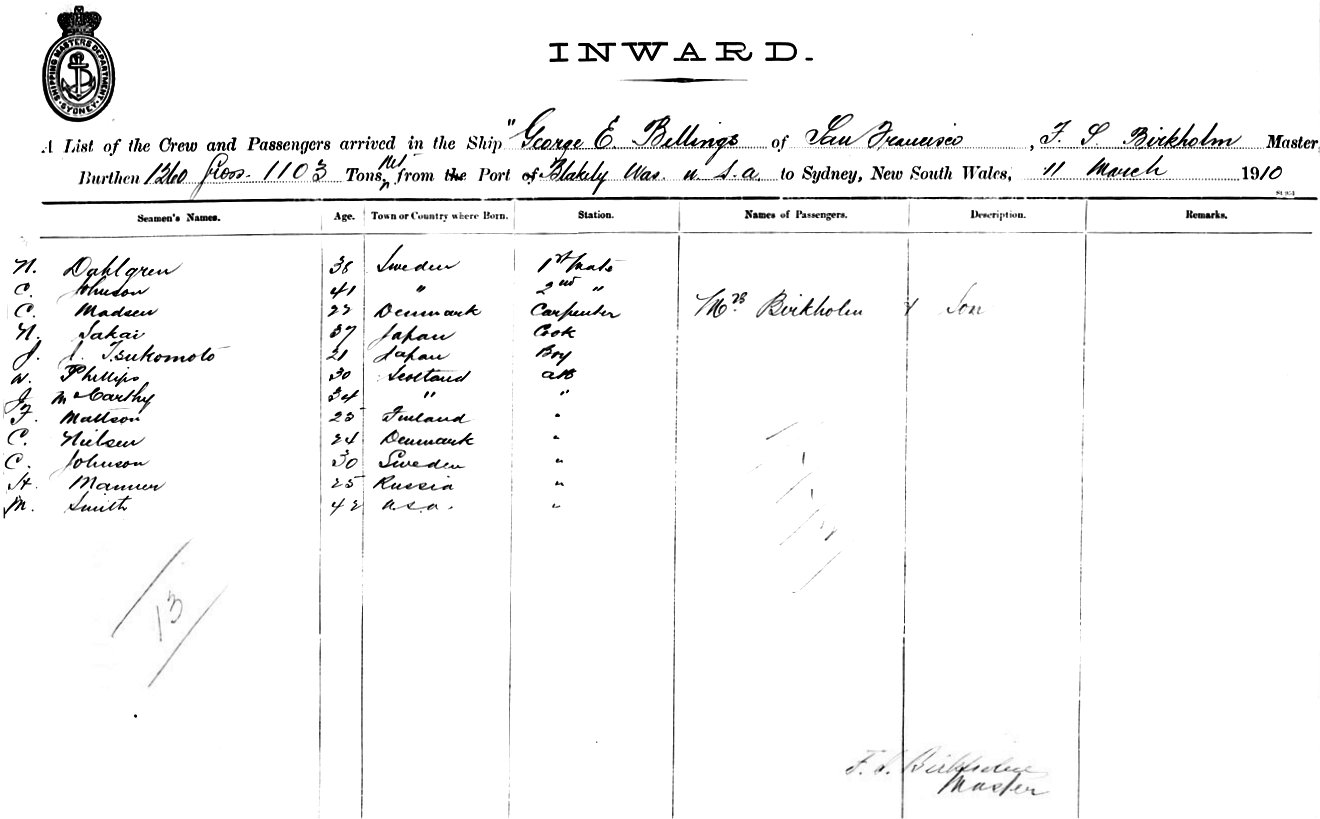 SHIPPING MASTERS DEPARTMENT SYDNEY
INWARD.
A List of the Crew and Passengers arrived in the Ship "George E Billings of San Francisco, F. S. Birkholm Master
Burthen 1260 Gross. 1103 Tons, Net from the Port of Blakely Was. U.S.A. to Sydney, New South Wales, 11 March 1910
Seamen's Names. Age. Town or Country where Born. Station. Names of Passengers. Description. Remarks.
N. Dahlgren 38 Sweden 1st Mate
C. Johnson 41 " 2nd "
C. Madsen 22 Denmark Carpenter Mrs Birkholm & Son
N. Sakai 37 Japan Cook
J. Tsukomoto 21 Japan Boy
W. Phillips 30 Scotland AB
J. McCarthy 34 " "
F. Mattson 25 Finland "
C. Nielsen 24 Denmark "
C. Johnson 30 Sweden "
H. Manner 25 Russia "
M. Smith 42 U.S.A. "
13
F. S. Birkholm
Master